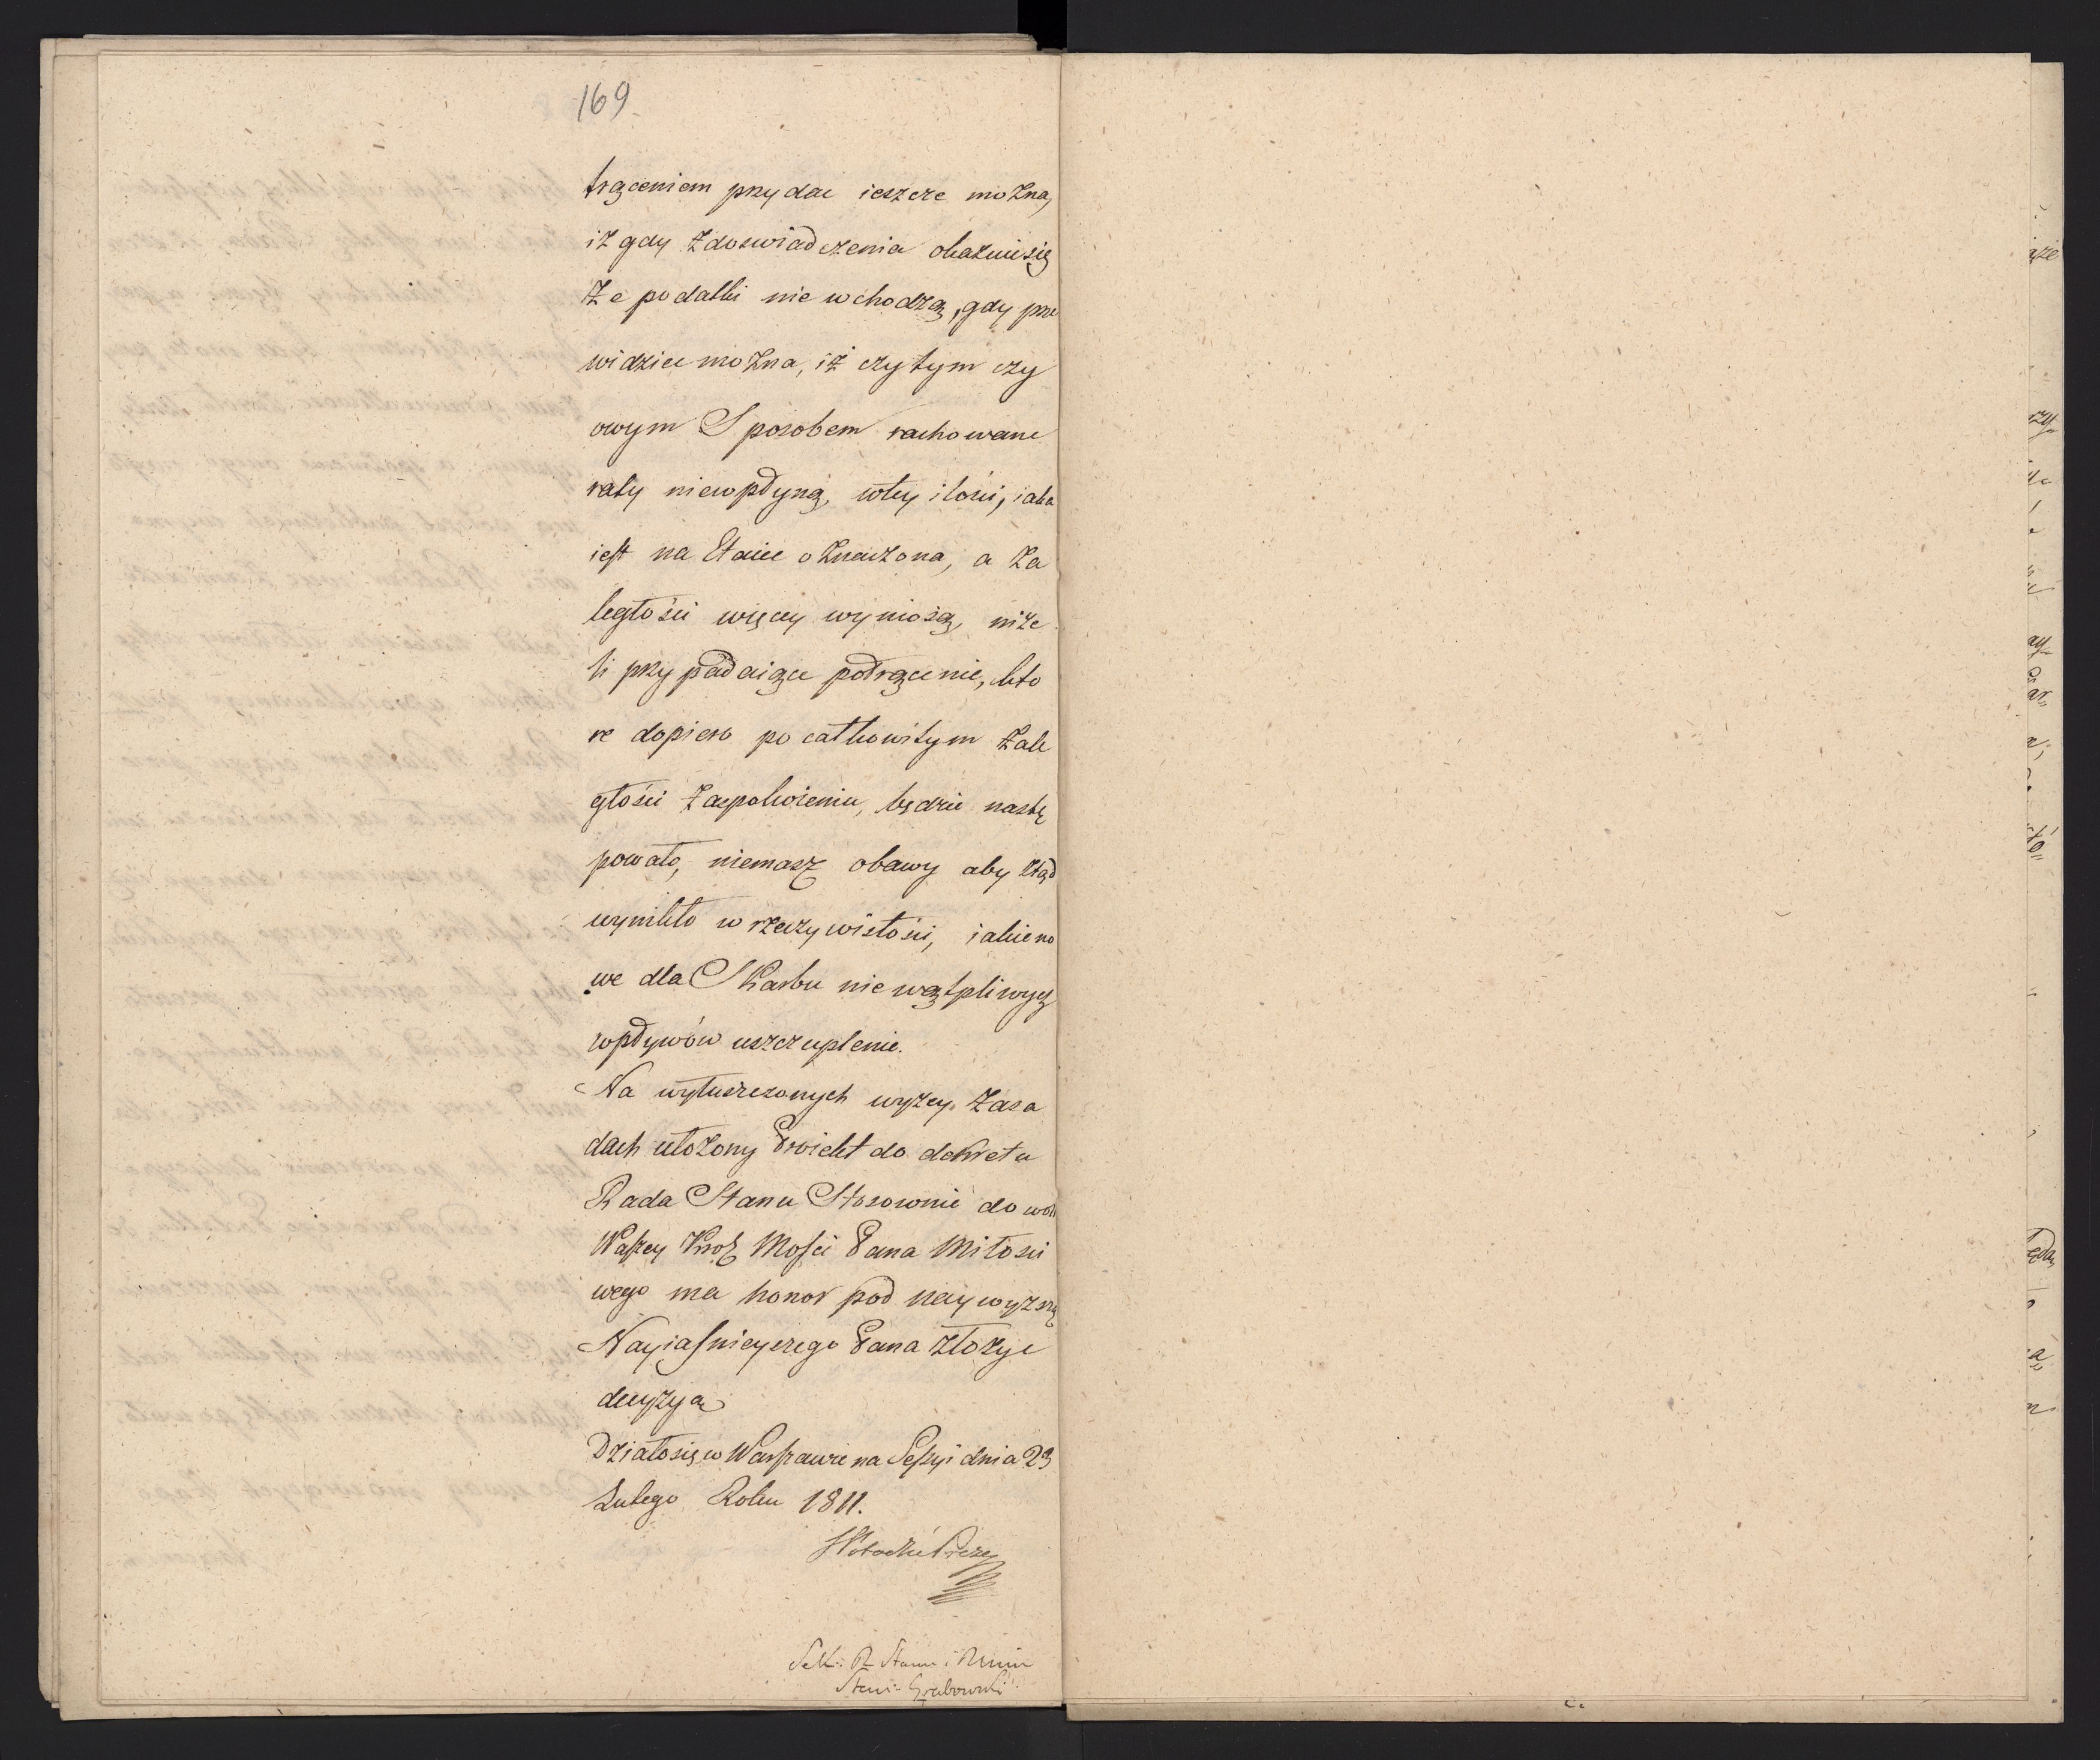 169.
trąceniem przydac ieszcze można,
iż gdy z doswiadczenia okaże się
że podatki nie wchodzą, gdy prze
widziec można, iż czy tym czy
owym Sposobem rachowane
raty niewpłyną, w tey ilości, iaka
iest na Etacie oznaczona, a za
ległości więcey wyniosą, niże
li przypadaiące potrącenie, kto
re dopiero po całkowitym zale
głości zaspokoieniu, będzie nastę
powało, niemasz obawy aby ztąd
wynikło w rzeczywistości, iakieno
we dla Skarbu nie wątpliwych
wpływów uszczuplenie.
Na wytuszczonych wyżey zasa
dach ułożony Proiekt do dekretu
Rada Stanu Stosownie do woli
Waszey Krol Mości Pana Miłości
wego ma honor pod naywyższą
Nayiaśnieyszego Pana złożyc
decyzyą
Działo się w Warszawie na Sessyi dnia 23
Lutego Roku 1811.
SPotocki Prezes
Sek: R Stanu i Minis
Stani: Grabowski